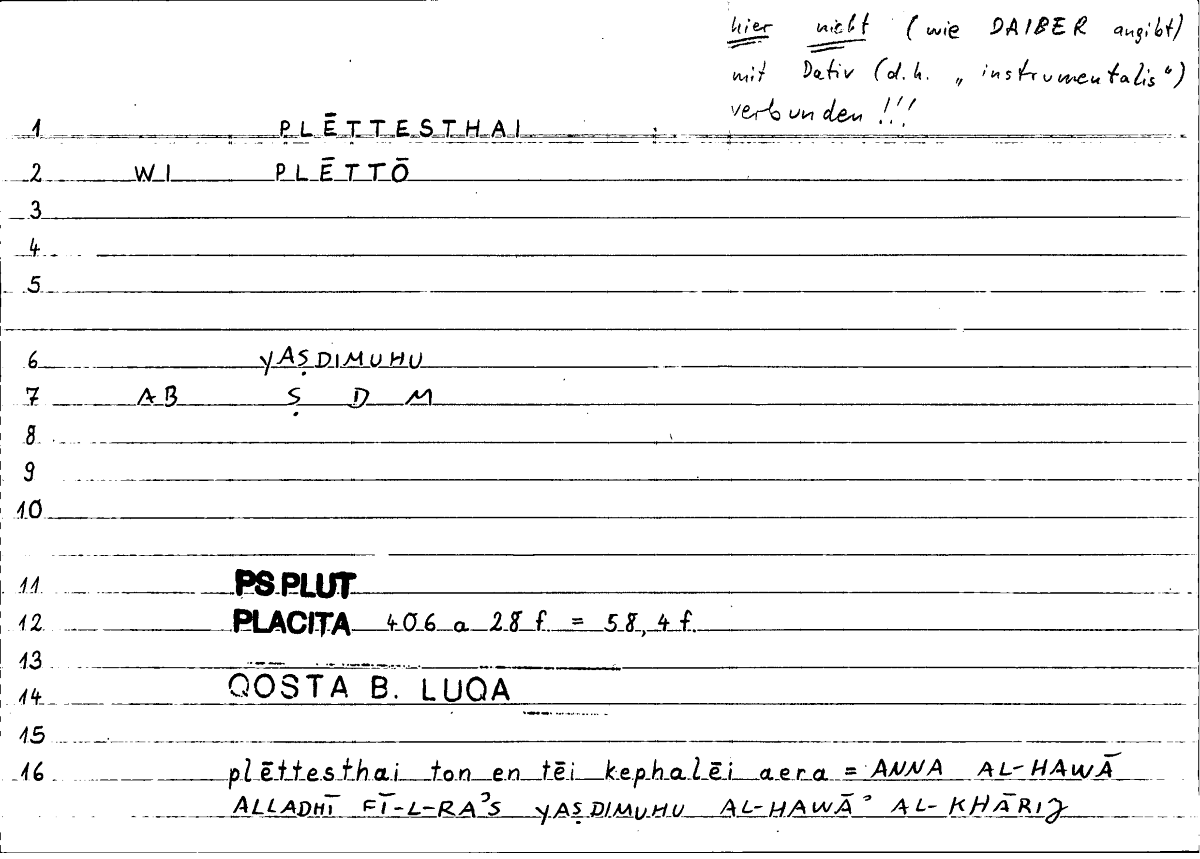 hier nicht (wie DAIBER angibt)
mit Dativ (d.h. „instrumentalis“)
verbunden !!!
1 PLĒTTESTHAI
2 WI PLĒTTŌ
3
4
5
6 YAṢDIMUHU
7 AB Ṣ D M
8
9
10
11 PS.PLUT
12 PLACITA 406 a 28 f. = 58, 4 f.
13
14 QOSTA B. LUQA
15
16 plēttesthai ton en tēi kephalēi aera = ANNA AL-HAWĀ
ALLADHĪ FĪ-L-RAʾS YAṢDIMUHU AL-HAWĀʾ AL-KHĀRIJ